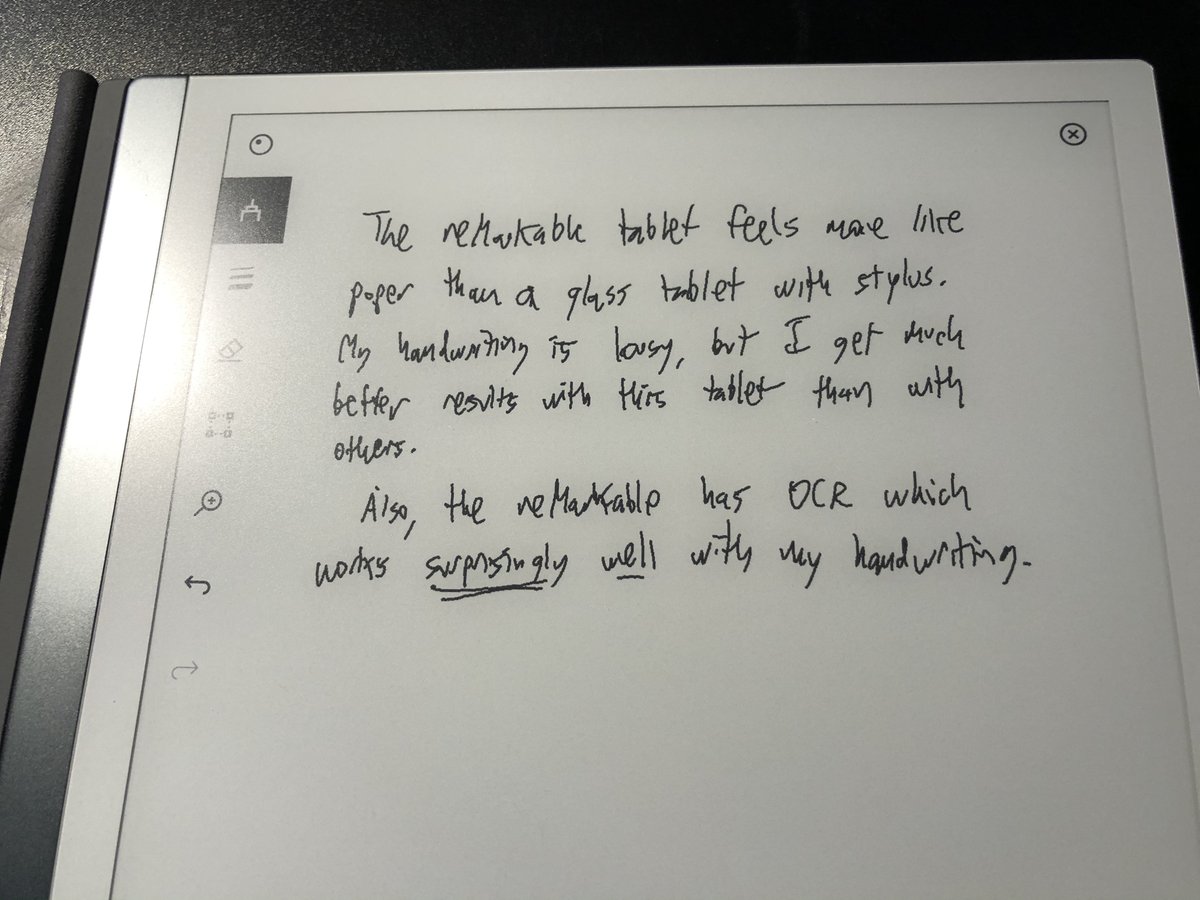 The reMarkable tablet feels more like
paper than a glass tablet with stylus.
My handwriting is lousy, but I get much
better results with this tablet than with
others.
Also, the reMarkable has OCR which
works surprisingly well with my handwriting.